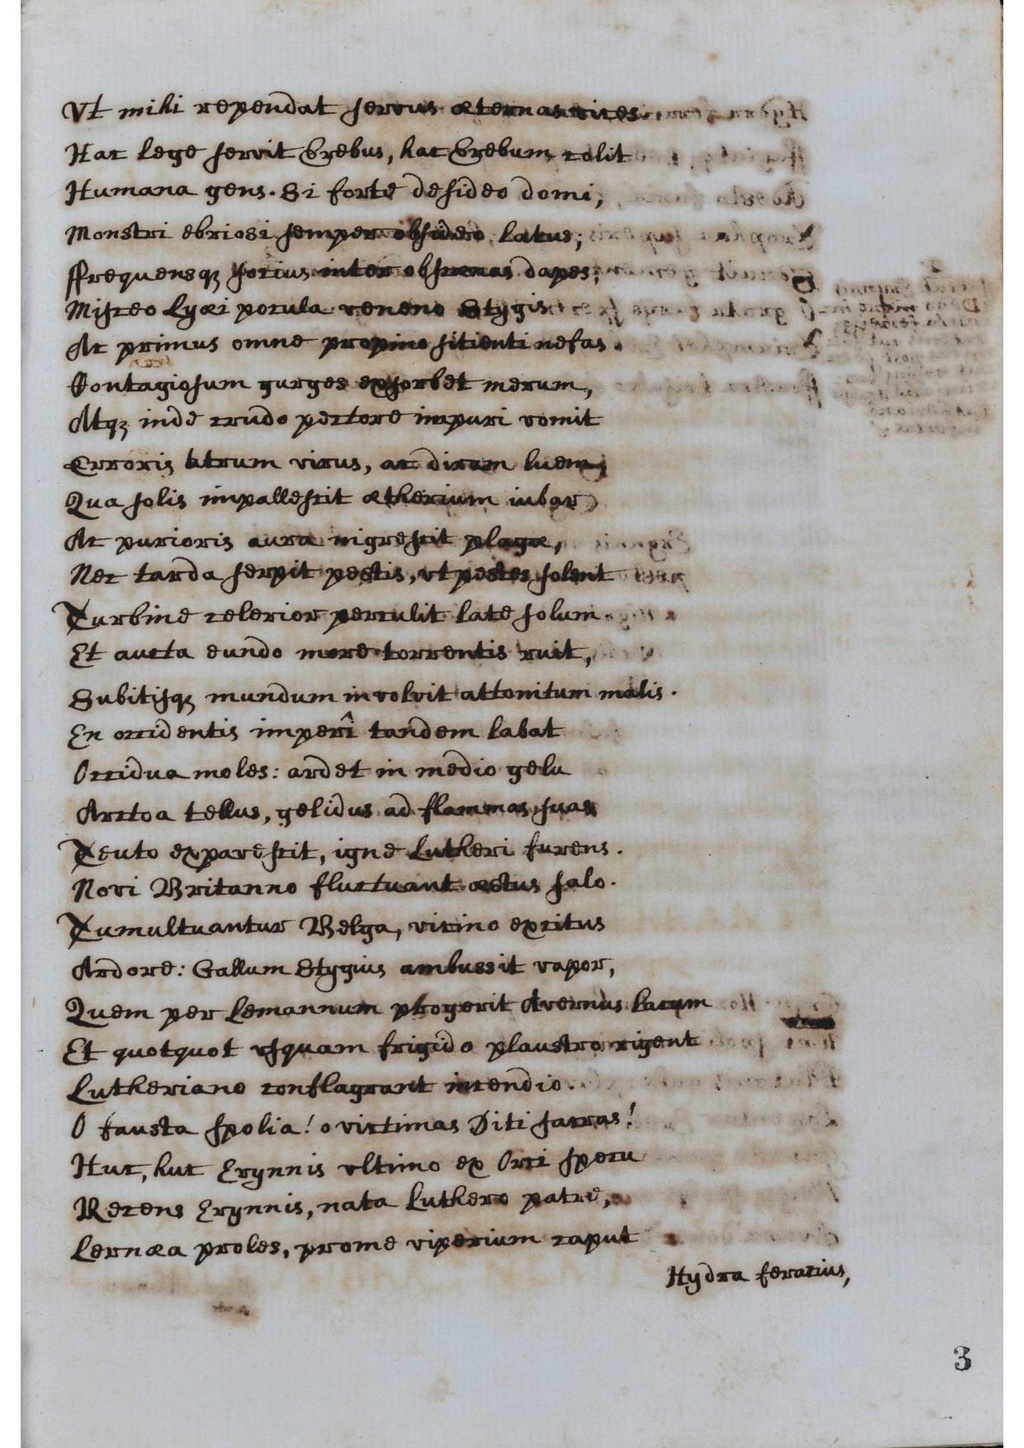 Vt mihi rependat servus æternas vices
Hac lege servit Erebus, hac Erebum colit
Humana gens. Si forte desideo domi,
Monstri ebriosi semper obsideo latus;
ffrequensq; socius inter obscænas dapes,
Misceo Lyæi pocula veneno Stygis
Ac primus omne propino sitienti nefas.
Contagiosum gurges exsorbet merum,
Atq; inde crudo pectore impuri vomit
Erroris atrum virus, ac diram luem
Qua solis impallescit ætherium iubar
Ac purioris aura nigrescit plagæ,
Nec tarda serpit pestis, vt pestes solent
Turbine celerior perculit late solum
Et aucta eundo more torrentis ruit,
Subitisq; mundum involvit attonitum malis.
En occidentis imperî tandem labat
Occidua moles: ardet in medio gelu
Arctoa tellus, gelidus ad flammas suas
Teuto expavescit, igne Lutheri furens.
Novi Britanno fluctuant æstus salo.
Tumultuantur Belgæ, vicino excitus
Ardore: Gallum Stygius ambussit vapor,
Quem per Lemannum progerit Avernus lacum
Et quotquot vsquam frigido plaustro rigent
Lutheriano conflagrant incendio.
O fausta spolia! o victimas Diti sacras!
Huc, huc Erynnis vltimo ex Orci specu
Recens Erynnis, nata Luthero patre,
Lernæa proles, prome viperium caput
Hydra feracius,
3